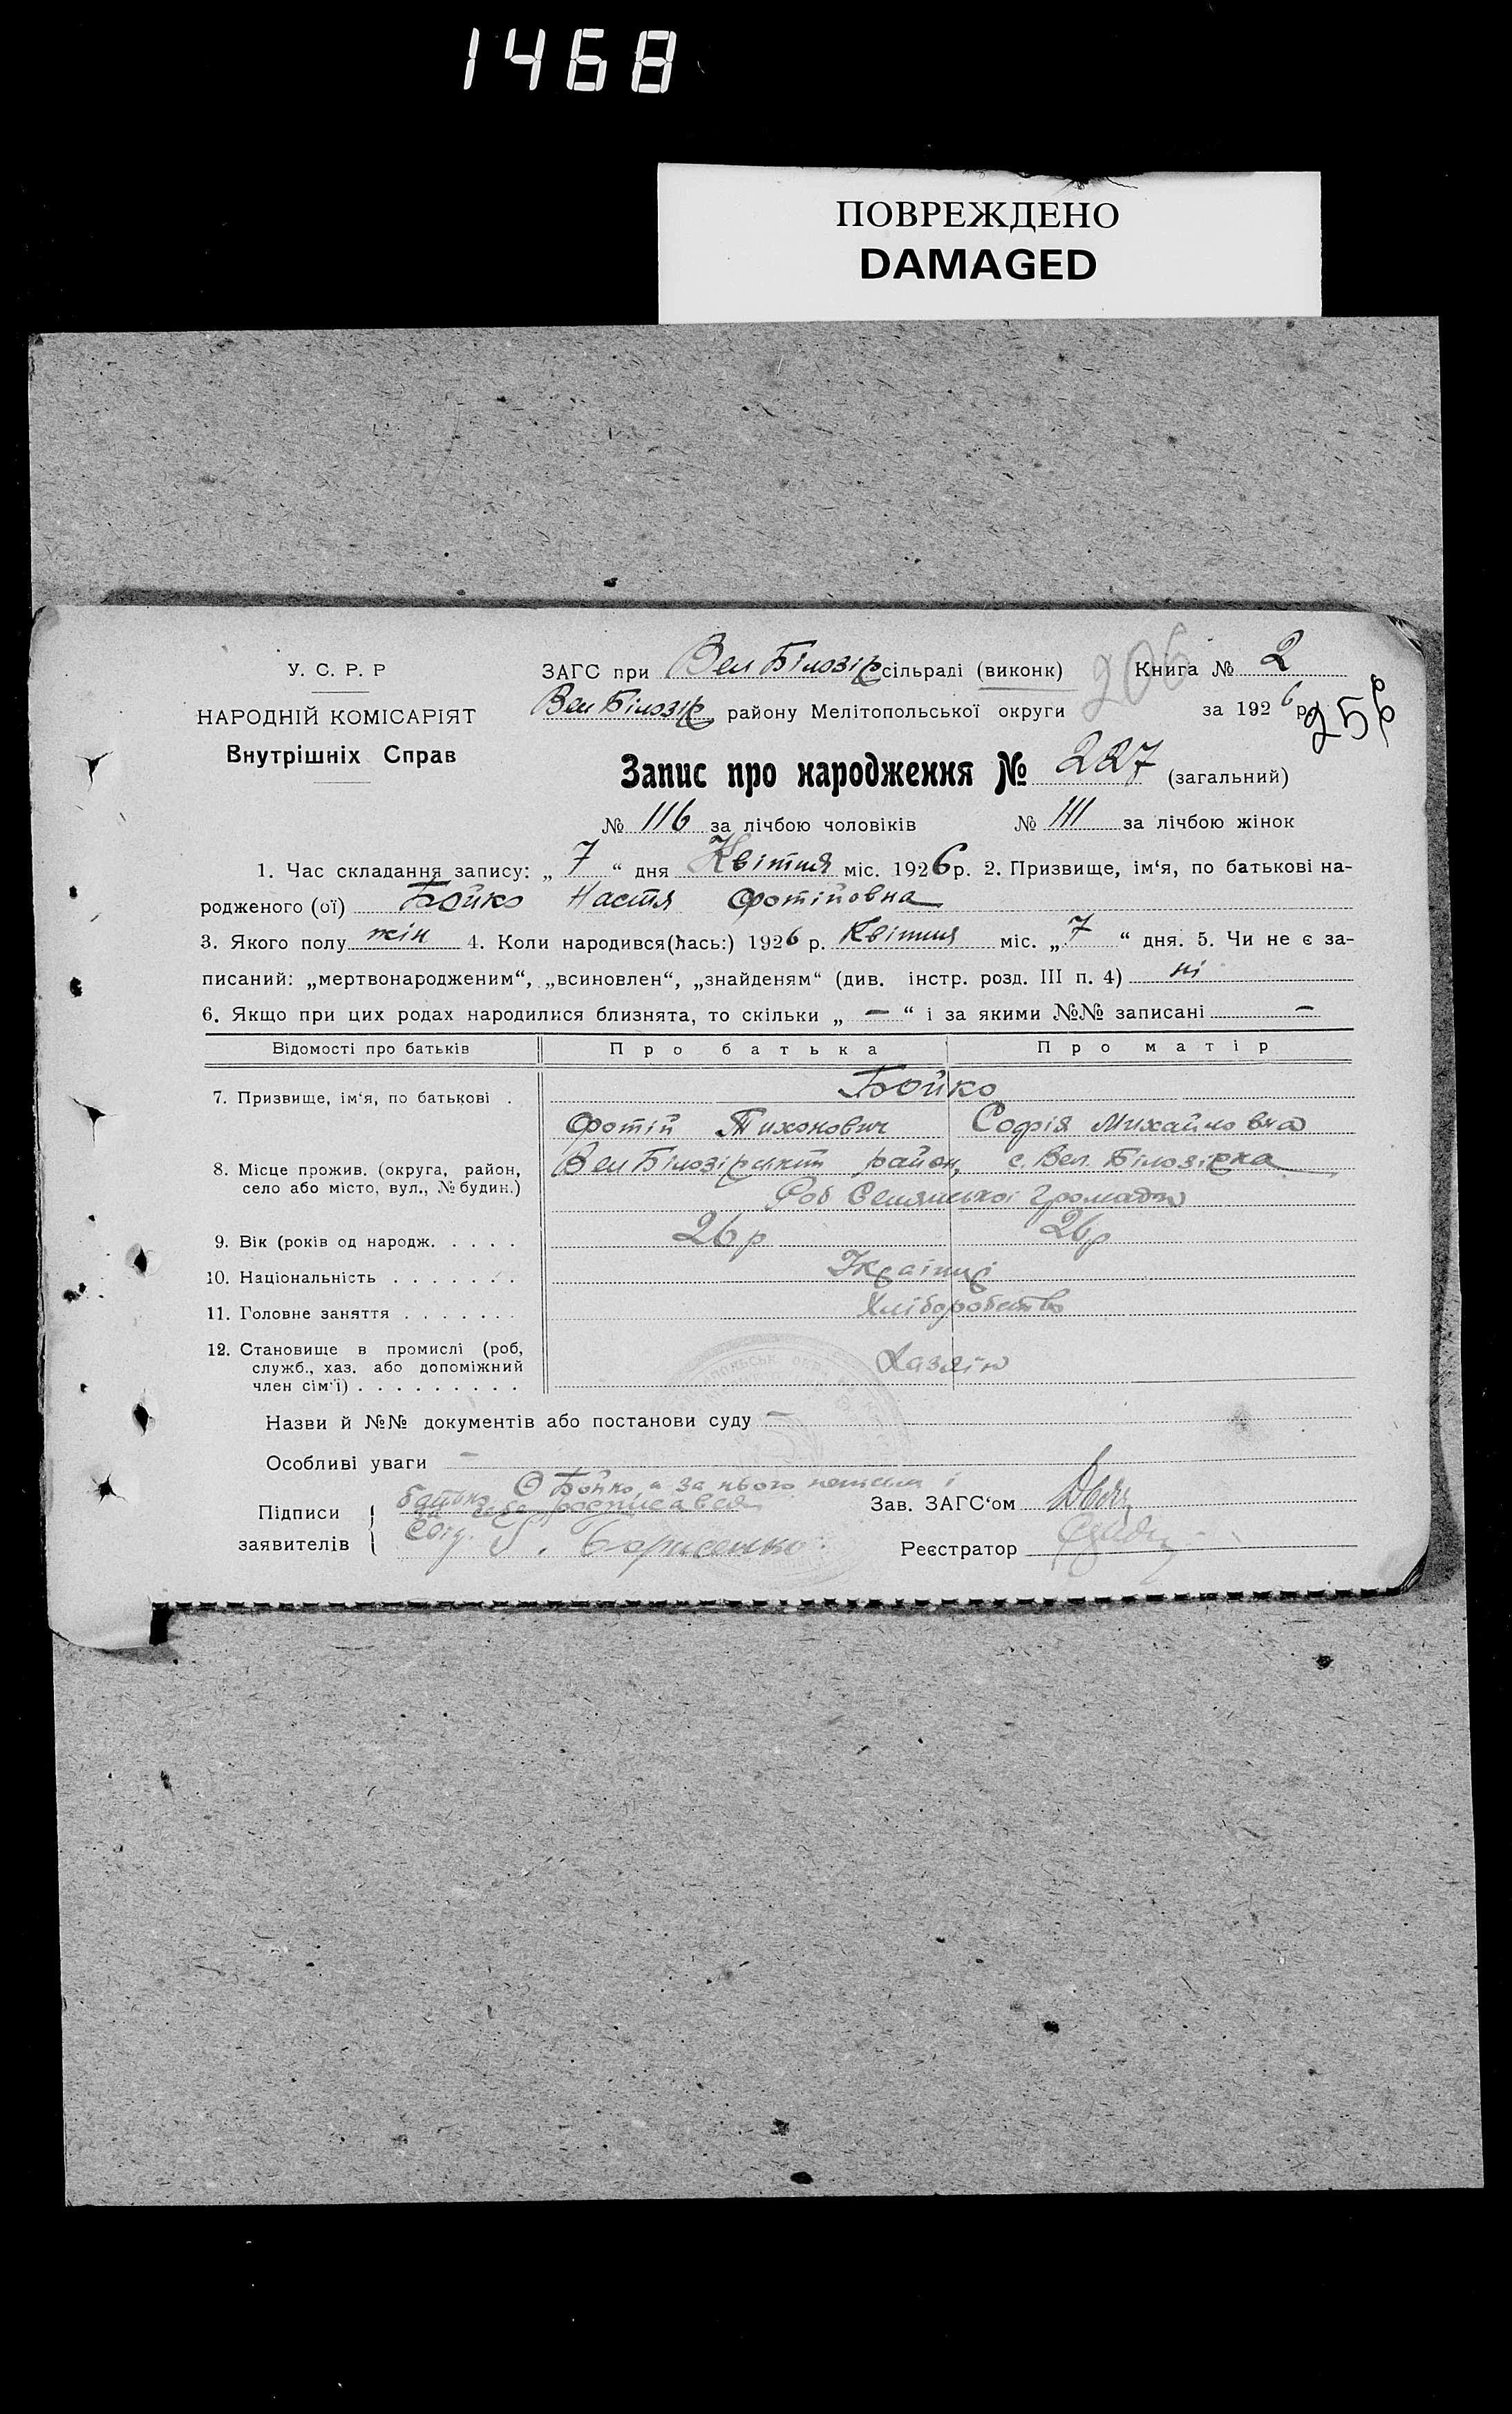 1468
ПОВРЕЖДЕНО
DAMAGED
У. С. Р. Р
НАРОДНІЙ КОМІСАРІЯТ
Внутрішніх Справ
ЗАГС при Вел Білозір сільраді (виконк)
206
Книга № 2
Вел Білозір району Мелітопольської округи
за 1926 р
Запис про народження № 227 (загальний)
№ 116 за лічбою чоловіків № 111 за лічбою жінок
1. Час складання запису: „ 7 “ дня Квітня міс. 1926 р. 2. Призвище, ім‘я, по батькові на-
родженого (ої) Бойко Настя Фотійовна
3. Якого полу жін 4. Коли народився(лась:) 1926 р. Квітня міс. „ 7 “ дня. 5. Чи не є за-
писаний: „мертвонародженим“, „всиновлен“, „знайденям“ (див. інстр. розд. III п. 4) ні
6. Якщо при цих родах народилися близнята, то скільки „ — “ і за якими №№ записані —
Відомості про батьків Про батька Про матір
7. Призвище, ім‘я, по батькові . Бойко
Фотій Тихонович Софія Михайловна
8. Місце прожив. (округа, район, село або місто, вул., № будин.) Вел район, с. Вел. Білозірка
Громади
9. Вік (років од народж. . . . . 26 р 26 р
10. Національність . . . . . . . Українці
11. Головне заняття . . . . . . . Хліборобство
12. Становище в промислі (роб,
служб., хаз. або допоміжний
член сім‘ї) . . . . . . . . . Хазяін
Назви й №№ документів або постанови суду —
Особливі уваги —
Підписи
заявителів
батько Ф Бойко, а за нього і
за себе росписався
Борисенко
Зав. ЗАГС‘ом
Реєстратор